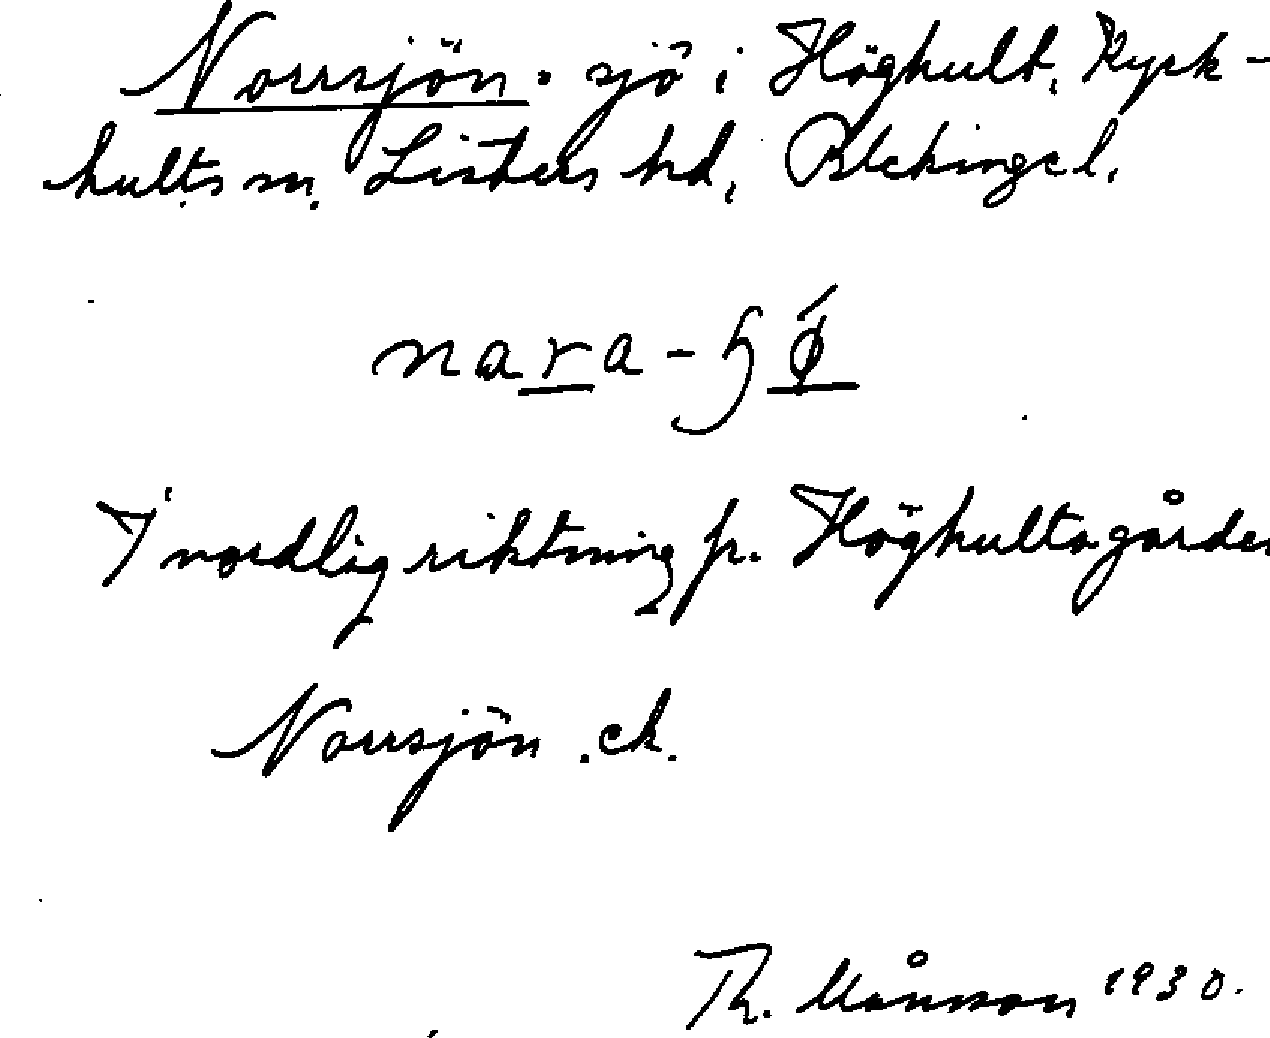 Norrsjön. sjö i Höghult, Ryck-
hults sn. Listers hd, Blekinge l.
nara-ɧǿ
I nordlig riktning fr. Höghultagården
Norrsjön .ek.
Th. Månsson 1930.